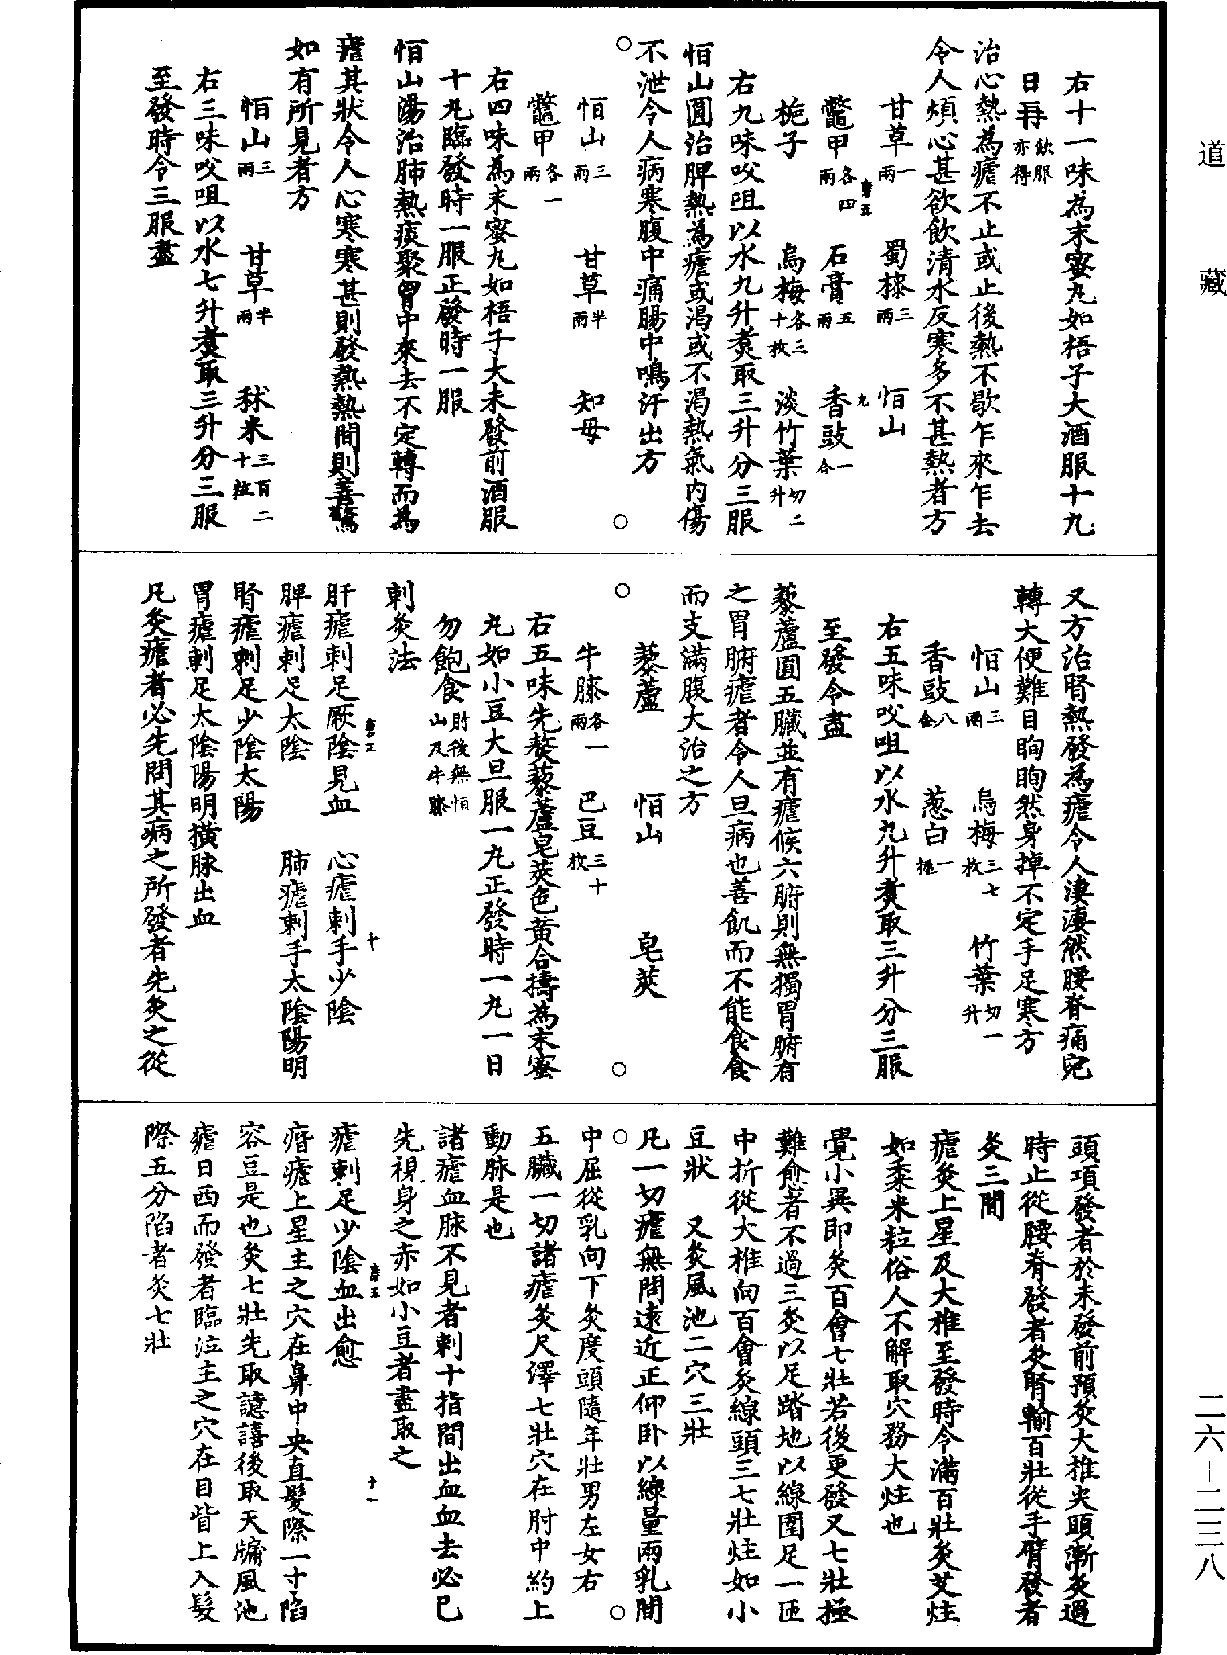 道藏
右十一味為末蜜丸如梧子大酒服十九
日再飲服亦得
治心熱為瘧不止或止後熱不歇乍來乍去
令人煩心甚欲飲清水反寒多不甚熱者方
甘草一兩 蜀椂三兩 恒山
鼈甲各四兩 石膏五兩 香豉一合
唐五 九
梔子 烏梅各三十枚 淡竹葉切二升
右九味㕮咀以水九升煑取三升分三服
恒山圓治脾熱為瘧或渴或不渴熱氣內傷
不泄令人病寒腹中痛腸中鳴汗出方
恒山三兩 甘草半兩 知母
鼈甲各一兩
右四味為末蜜丸如梧子大未發前酒服
十丸臨發時一服正發時一服
恒山湯治肺熱痰聚胷中來去不定轉而為
瘧其狀令人心寒寒甚則發熱熱間則善驚
如有所見者方
恒山三兩 甘草半兩 秫米三百二十粒
右三味㕮咀以水七升煑取三升分三服
至發時令三服盡
又方治腎熱發為瘧令人淒淒然腰脊痛宛
轉大便難目眴眴然身掉不定手足寒方
恒山三兩 烏梅三七枚 竹葉切一升
香豉八合 葱白一握
右五味㕮咀以水九升煑取三升分三服
至發令盡
藜蘆圓五臟並有瘧候六腑則無獨胃腑有
之胃腑瘧者令人旦病也善飢而不能食食
而支滿腹大治之方
藜蘆 恒山 皂莢
牛膝各一兩 巴豆三十枚
右五味先熬藜蘆皂莢色黃合擣為末蜜
丸如小豆大旦服一丸正發時一丸一日
勿飽食肘後無恒山及牛膝
刺灸法
肝瘧刺足厥陰見血 心瘧刺手少陰
唐工 十
脾瘧刺足太陰 肺瘧刺手太陰陽明
腎瘧刺足少陰太陽
胃瘧刺足太陰陽明橫脉出血
凡灸瘧者必先問其病之所發者先灸之從
頭項發者於未發前預灸大椎尖頭漸灸過
時止從腰脊發者灸腎輸百壯從手臂發者
灸三間
瘧灸上星及大椎至發時令滿百壯灸艾炷
如黍米粒俗人不解取穴務大炷也
覺小異即灸百會七壯若後更發又七壯極
難愈者不過三灸以足踏地以線圍足一匝
中折從大椎向百會灸線頭三七壯炷如小
豆狀 又灸風池二穴三壯
凡一切瘧無問遠近正仰臥以線量兩乳間
中屈從乳向下灸度頭隨年壯男左女右
五臟一切諸瘧灸尺澤七壯穴在肘中約上
動脉是也
諸瘧血脉不見者刺十指間出血血去必已
先視身之赤如小豆者盡取之
瘧刺足少陰血出愈
唐五 十一
痎瘧上星主之穴在鼻中央直髮際一寸陷
容豆是也灸七壯先取譩譆後取天牖風池
瘧日西而發者臨泣主之穴在目眥上入髮
際五分陷者灸七壯
二六—二三八